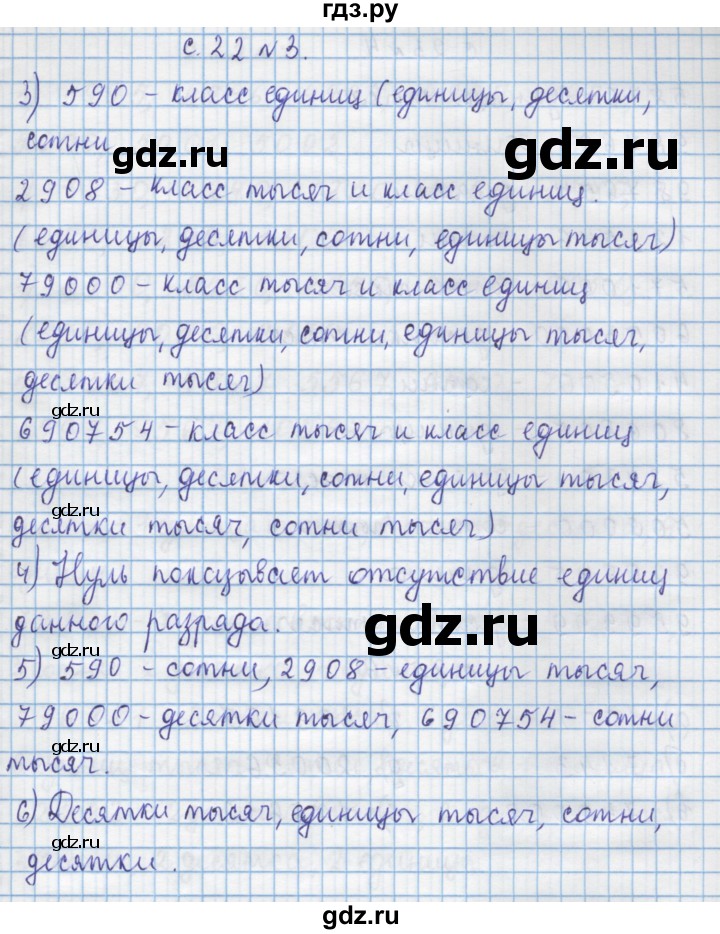 гдз.ру
с. 22 № 3.
3) 590 – класс единиц (единицы, десятки,
сотни
gdz.ru
gdz.ru
2908 – класс тысяч и класс единиц.
(единицы, десятки, сотни, единицы тысяч)
gdz.ru
79000 – класс тысяч и класс единиц
(единицы, десятки, сотни, единицы тысяч,
десятки тысяч)
gdz.ru
690754 – класс тысяч и класс единиц
(единицы, десятки, сотни, единицы тысяч,
gdz.ru
десятки тысяч, сотни тысяч)
4) Нуль показывает отсутствие единиц
gdz.ru
данного разряда.
gdz.ru
5) 590 – сотни, 2908 – единицы тысяч,
79000 – десятки тысяч, 690754 – сотни
gdz.ru
тысяч.
6) Десятки тысяч, единицы тысяч, сотни,
gdz.ru
десятки.
gdz.ru